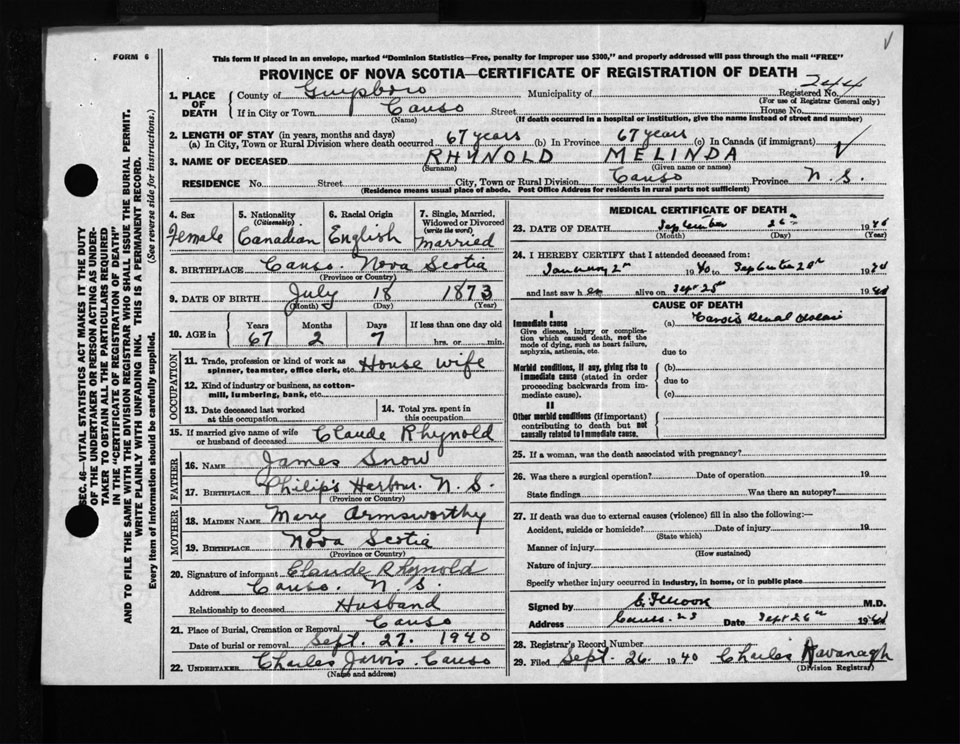 FORM 6
This form if placed in an envelope, marked "Dominion Statistics—Free, penalty for improper use $300," and properly addressed will pass through the mail "FREE"
PROVINCE OF NOVA SCOTIA—CERTIFICATE OF REGISTRATION OF DEATH
244
1. PLACE OF DEATH County of Guysboro Municipality of Registered No.
(For use of Registrar General only)
If in City or Town Canso Street House No.
(Name) (If death occurred in a hospital or institution, give the name instead of street and number)
2. LENGTH OF STAY (in years, months and days)
(a) In City, Town or Rural Division where death occurred 67 years (b) In Province 67 years (c) In Canada (if immigrant)
3. NAME OF DECEASED RHYNOLD MELINDA
(Surname) (Given name or names)
RESIDENCE No. Street City, Town or Rural Division Canso Province N. S.
(Residence means usual place of abode. Post Office Address for residents in rural parts not sufficient)
4. Sex Female
5. Nationality (Citizenship) Canadian
6. Racial Origin English
7. Single, Married, Widowed or Divorced (write the word) Married
8. BIRTHPLACE Canso. Nova Scotia
(Province or Country)
9. DATE OF BIRTH July 18 1873
(Month) (Day) (Year)
10. AGE in Years Months Days If less than one day old
67 2 7 hrs. or min.
OCCUPATION
11. Trade, profession or kind of work as spinner, teamster, office clerk, etc. House wife
12. Kind of industry or business, as cotton-mill, lumbering, bank, etc.
13. Date deceased last worked at this occupation
14. Total yrs. spent in this occupation
15. If married give name of wife or husband of deceased Claude Rhynold
FATHER
16. NAME James Snow
17. BIRTHPLACE Philip's Harbour. N. S.
(Province or Country)
MOTHER
18. MAIDEN NAME Mary Armsworthy
19. BIRTHPLACE Nova Scotia
(Province or Country)
20. Signature of informant Claude Rhynold
Address Canso. N. S.
Relationship to deceased Husband
21. Place of Burial, Cremation or Removal Canso
Date of burial or removal Sept. 27. 1940
22. UNDERTAKER Charles Jarvis. Canso
(Name and address)
MEDICAL CERTIFICATE OF DEATH
23. DATE OF DEATH September 26th 1940
(Month) (Day) (Year)
24. I HEREBY CERTIFY that I attended deceased from:
January 2nd 1940 to September 1940
and last saw her alive on Sept 25th 1940
CAUSE OF DEATH
I
Immediate cause (a) Renal
Give disease, injury or complication which caused death, not the mode of dying, such as heart failure, asphyxia, asthenia, etc.
due to
Morbid conditions, if any, giving rise to immediate cause (stated in order proceeding backwards from immediate cause).
(b)
due to
(c)
II
Other morbid conditions (if important) contributing to death but not causally related to immediate cause.
25. If a woman, was the death associated with pregnancy?
26. Was there a surgical operation? Date of operation 19
State findings Was there an autopsy?
27. If death was due to external causes (violence) fill in also the following:—
Accident, suicide or homicide? Date of injury 19
(State which)
Manner of injury
(How sustained)
Nature of injury
Specify whether injury occurred in industry, in home, or in public place
Signed by M.D.
Address Canso. N S Date Sept 26th 1940
28. Registrar's Record Number
29. Filed Sept. 26. 1940 Charles Kavanagh
(Division Registrar)
SEC. 46—VITAL STATISTICS ACT MAKES IT THE DUTY
OF THE UNDERTAKER OR PERSON ACTING AS UNDER-
TAKER TO OBTAIN ALL THE PARTICULARS REQUIRED
IN THE "CERTIFICATE OF REGISTRATION OF DEATH"
AND TO FILE THE SAME WITH THE DIVISION REGISTRAR WHO SHALL ISSUE THE BURIAL PERMIT.
WRITE PLAINLY WITH UNFADING INK. THIS IS A PERMANENT RECORD.
Every item of information should be carefully supplied. (See reverse side for instructions.)